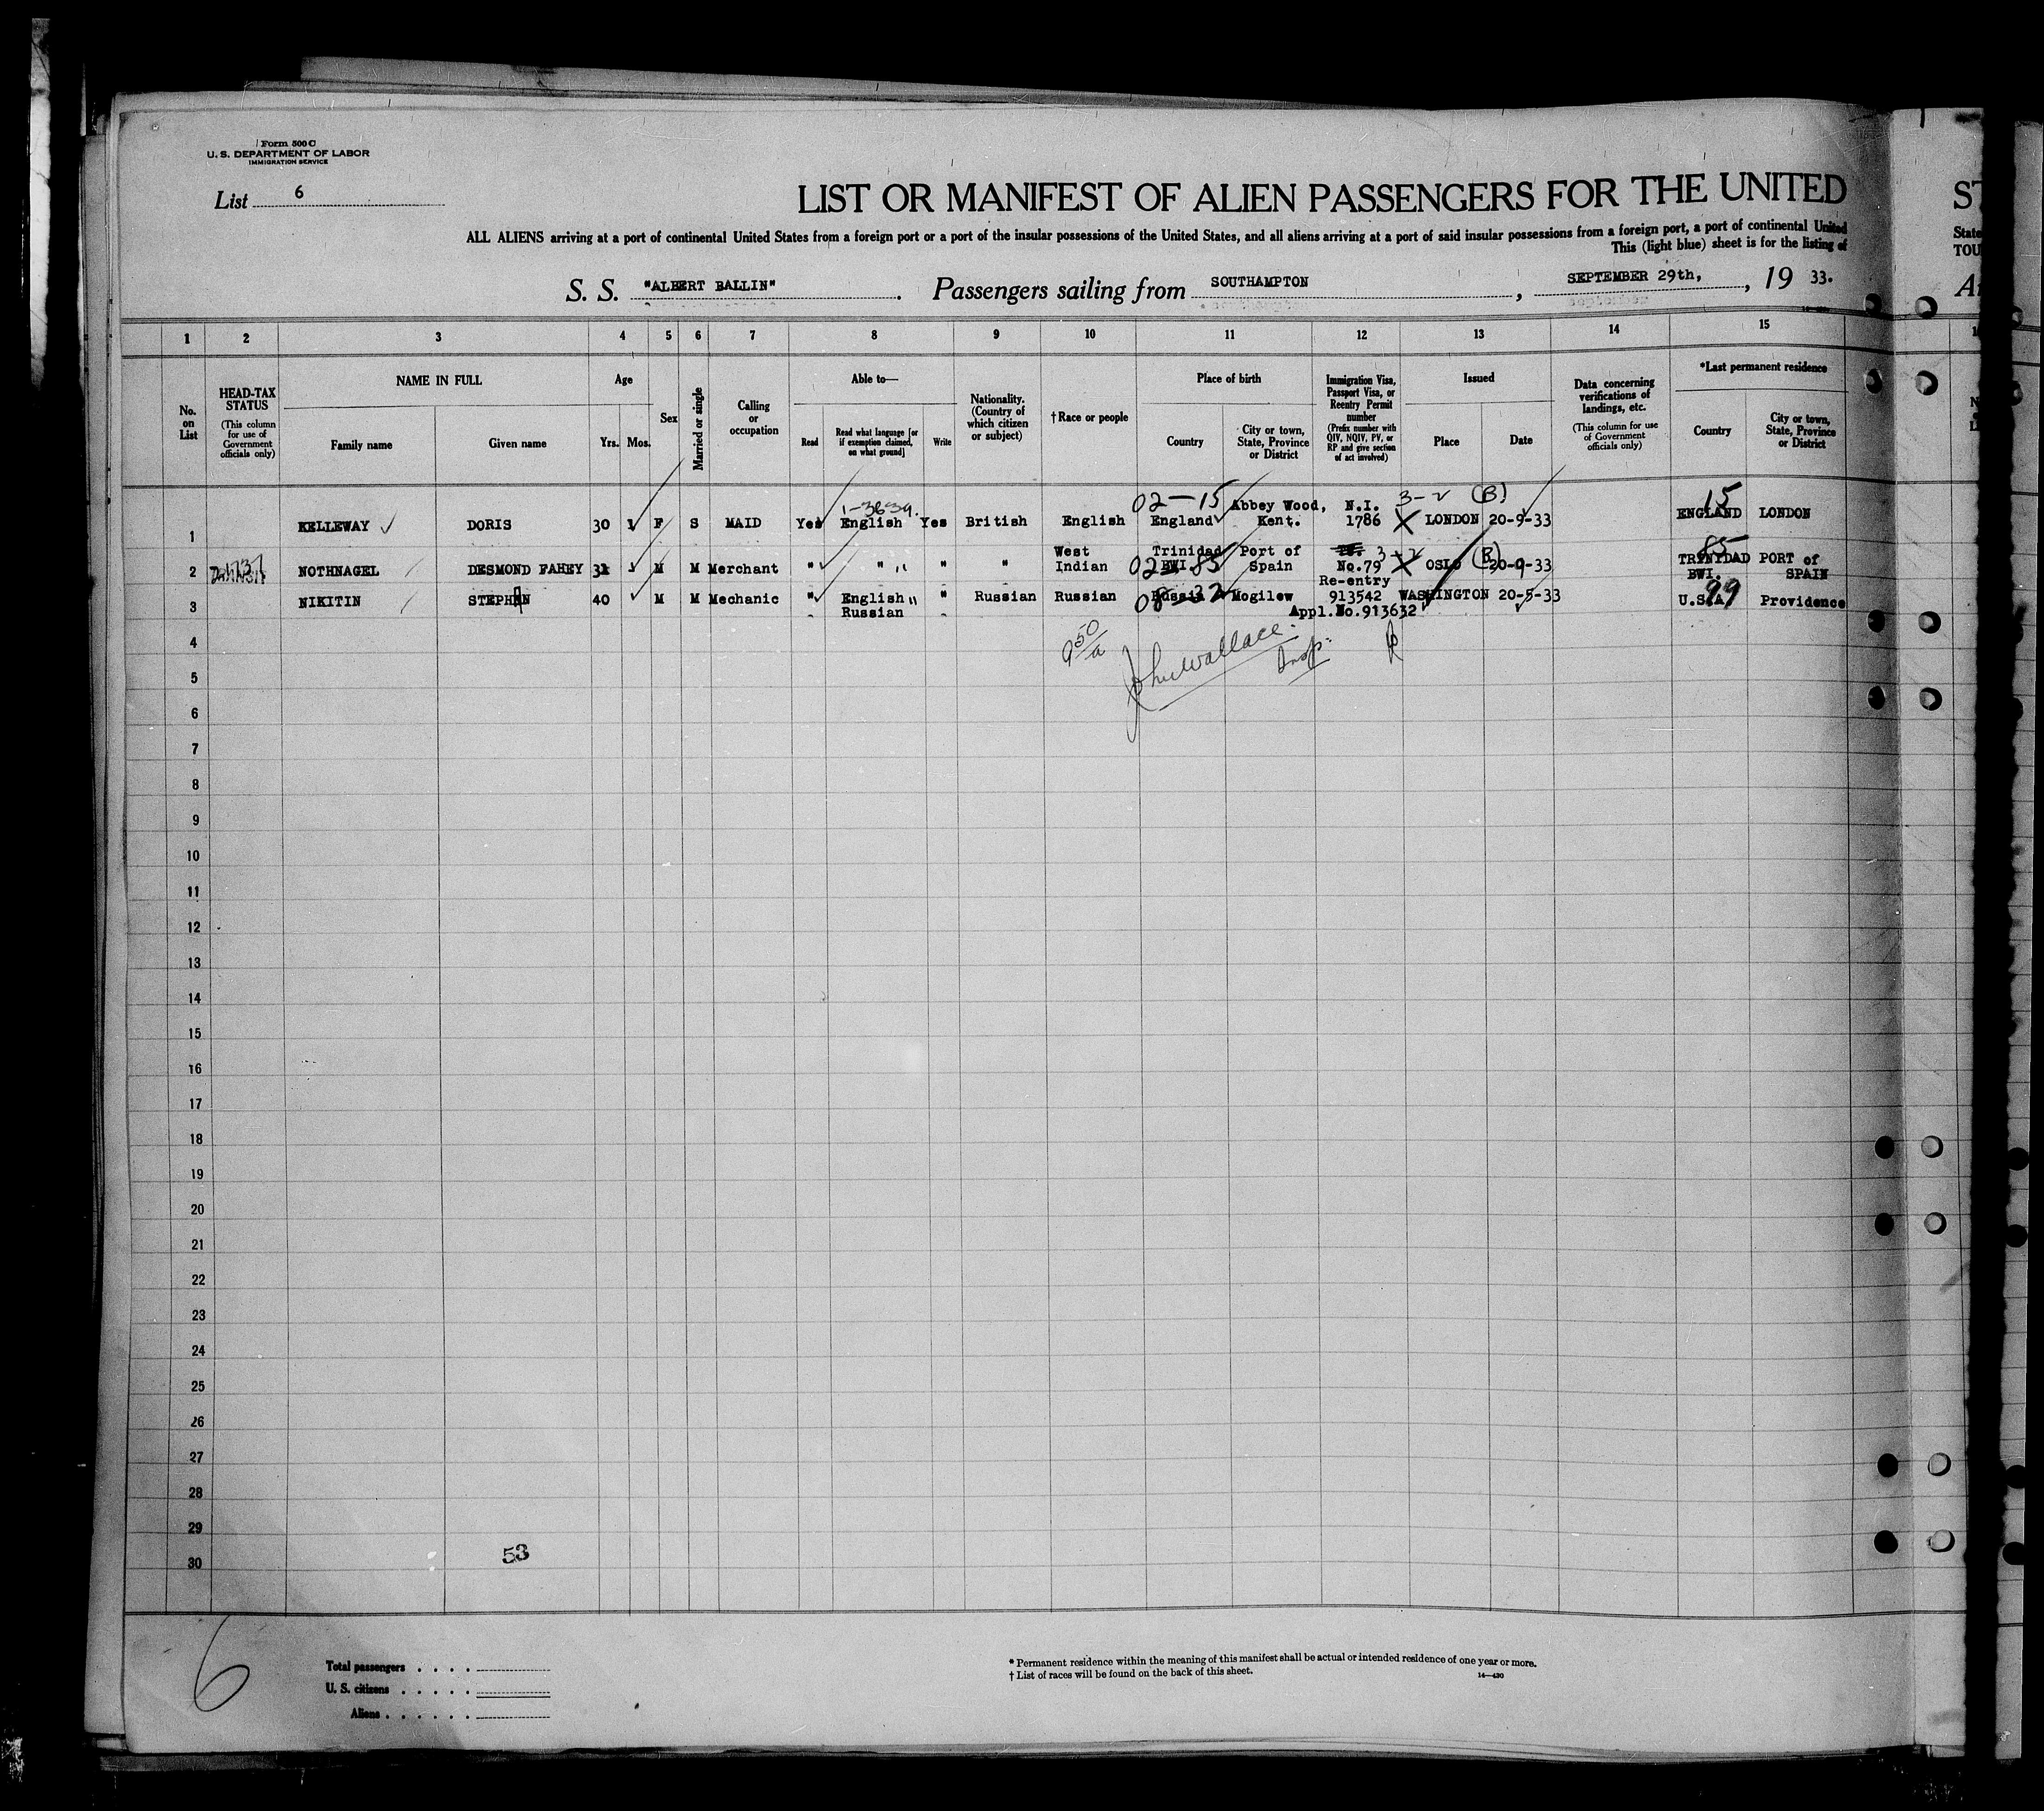 Form 500 C
U. S. DEPARTMENT OF LABOR
IMMIGRATION SERVICE
List 6
LIST OR MANIFEST OF ALIEN PASSENGERS FOR THE UNITED
ST
ALL ALIENS arriving at a port of continental United States from a foreign port or a port of the insular possessions of the United States, and all aliens arriving at a port of said insular possessions from a foreign port, a port of continental United
State
This (light blue) sheet is for the listing of
TOU
S. S. "ALBERT BALLIN". Passengers sailing from SOUTHAMPTON, SEPTEMBER 29th, , 19 33.
1 2 3 4 5 6 7 8 9 10 11 12 13 14 15
No. on List
HEAD-TAX STATUS (This column for use of Government officials only)
NAME IN FULL
Family name
Given name
Age
Yrs. Mos.
Sex
Married or single
Calling or occupation
Able to—
Read
Read what language [or if exemption claimed, on what ground]
Write
Nationality. (Country of which citizen or subject)
†Race or people
Place of birth
Country
City or town, State, Province or District
Immigration Visa, Passport Visa, or Reentry Permit number (Prefix number with QIV, NQIV, PV, or RP and give section of act involved)
Issued
Place
Date
Data concerning verifications of landings, etc. (This column for use of Government officials only)
*Last permanent residence
Country
City or town, State, Province or District
02-15 Abbey Wood, N.I. 3-2 (B) 15
1 KELLEWAY DORIS 30 F S MAID Yes English Yes British English England Kent. 1786 LONDON 20-9-33 ENGLAND LONDON
West Trinidad Port of 3-2 85
2 NOTHNAGEL DESMOND FAHEY M M Merchant " " " " Indian 02 BWI. 85 Spain No.79 OSLO 20-9-33 TRINIDAD PORT of
Re-entry BWI. SPAIN
3 NIKITIN STEPHAN 40 M M Mechanic " English " " Russian Russian Russia Mogilew 913542 WASHINGTON 20-5-33 U.S.A. 99 Providence
Russian Appl.No.913632
John Wallace
Insp.
4
5
6
7
8
9
10
11
12
13
14
15
16
17
18
19
20
21
22
23
24
25
26
27
28
29
30
53
6
Total passengers
U. S. citizens
Aliens
* Permanent residence within the meaning of this manifest shall be actual or intended residence of one year or more.
† List of races will be found on the back of this sheet.
14—430